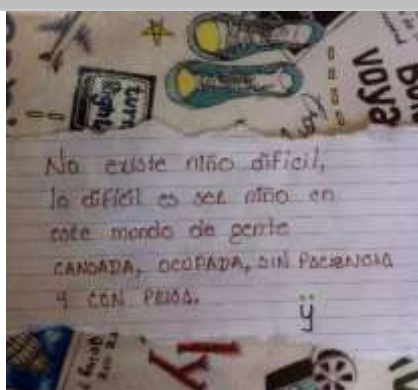 turn
Right
BON
voya
No existe niño dificil,
lo dificil es ser niño en
este mundo de gente
CANSADA, OCUPADA, SIN PACIENCIA
Y CON PRISA.
ÿ
ly